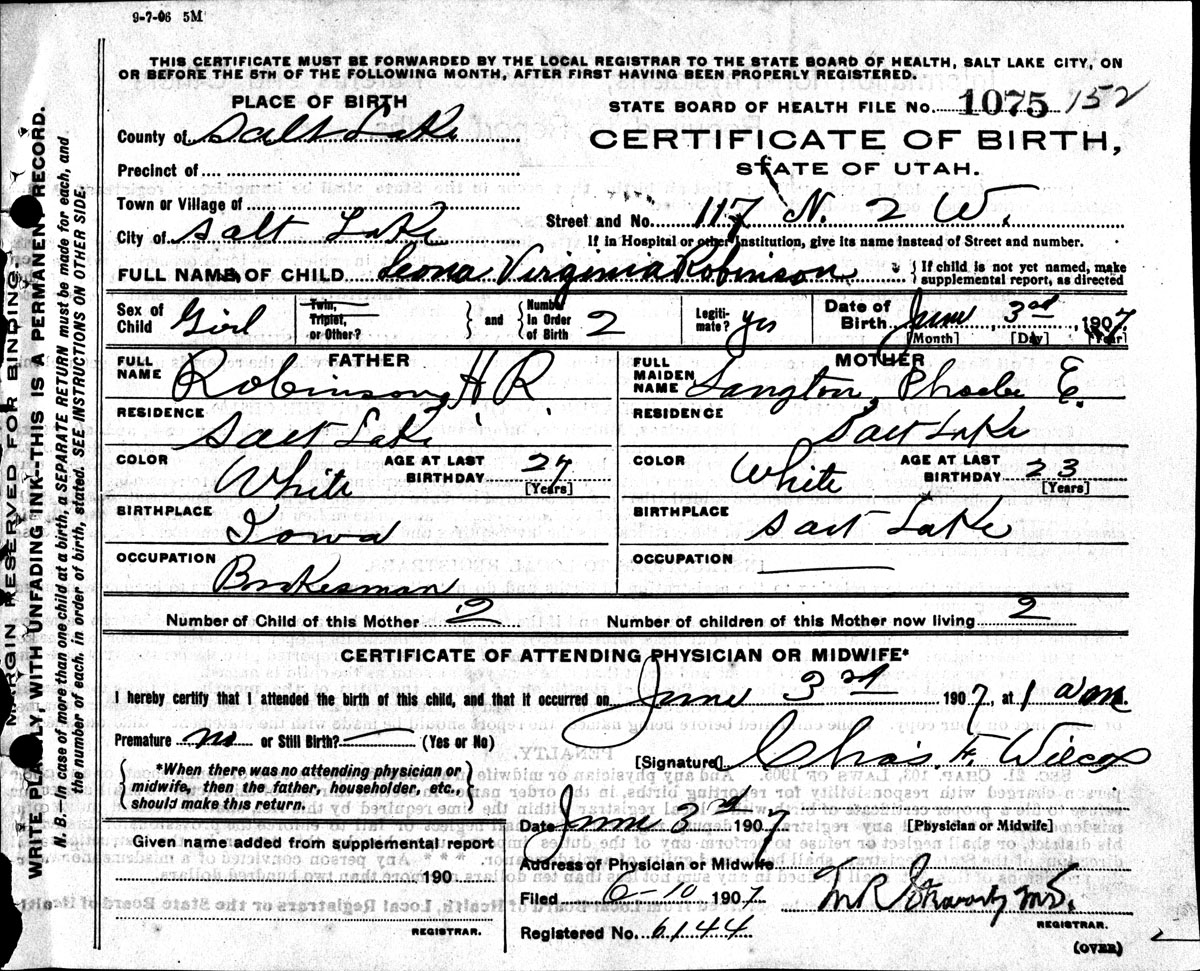 9-7-06 5M
THIS CERTIFICATE MUST BE FORWARDED BY THE LOCAL REGISTRAR TO THE STATE BOARD OF HEALTH, SALT LAKE CITY, ON
OR BEFORE THE 5TH OF THE FOLLOWING MONTH, AFTER FIRST HAVING BEEN PROPERLY REGISTERED.
PLACE OF BIRTH
STATE BOARD OF HEALTH FILE No. 1075 152
County of Salt Lake
CERTIFICATE OF BIRTH,
Precinct of
STATE OF UTAH.
Town or Village of
Street and No. 117 N. 2 W.
City of Salt Lake
If in Hospital or other Institution, give its name instead of Street and number.
FULL NAME OF CHILD Leona Virginia Robinson { If child is not yet named, make
supplemental report, as directed
Sex of Child Girl
Twin, Triplet, or Other?
and { Number in Order of Birth 2
Legiti-mate? yes
Date of Birth June 3rd, 1907
[Month] [Day] [Year]
FATHER
FULL NAME Robinson, H R.
MOTHER
FULL MAIDEN NAME Langton, Phoebe E.
RESIDENCE Salt Lake
RESIDENCE Salt Lake
COLOR White AGE AT LAST BIRTHDAY 27 [Years]
COLOR White AGE AT LAST BIRTHDAY 23 [Years]
BIRTHPLACE Iowa
BIRTHPLACE Salt Lake
OCCUPATION Brakesman
OCCUPATION
Number of Child of this Mother 2 Number of children of this Mother now living 2
CERTIFICATE OF ATTENDING PHYSICIAN OR MIDWIFE*
I hereby certify that I attended the birth of this child, and that it occurred on June 3rd 1907, at 1 a m.
Premature no or Still Birth? (Yes or No)
[Signature] Chas. F. Wilcox
*When there was no attending physician or
midwife, then the father, householder, etc.,
should make this return.
Date June 3rd 1907 [Physician or Midwife]
Given name added from supplemental report
Address of Physician or Midwife
190
Filed 6-10 1907
REGISTRAR.
Registered No. 6144
REGISTRAR.
(OVER)
MARGIN RESERVED FOR BINDING.
WRITE PLAINLY WITH UNFADING INK--THIS IS A PERMANENT RECORD.
N. B. In case of more than one child at a birth, a SEPARATE RETURN must be made for each, and
the number of each, in order of birth, stated. SEE INSTRUCTIONS ON OTHER SIDE.